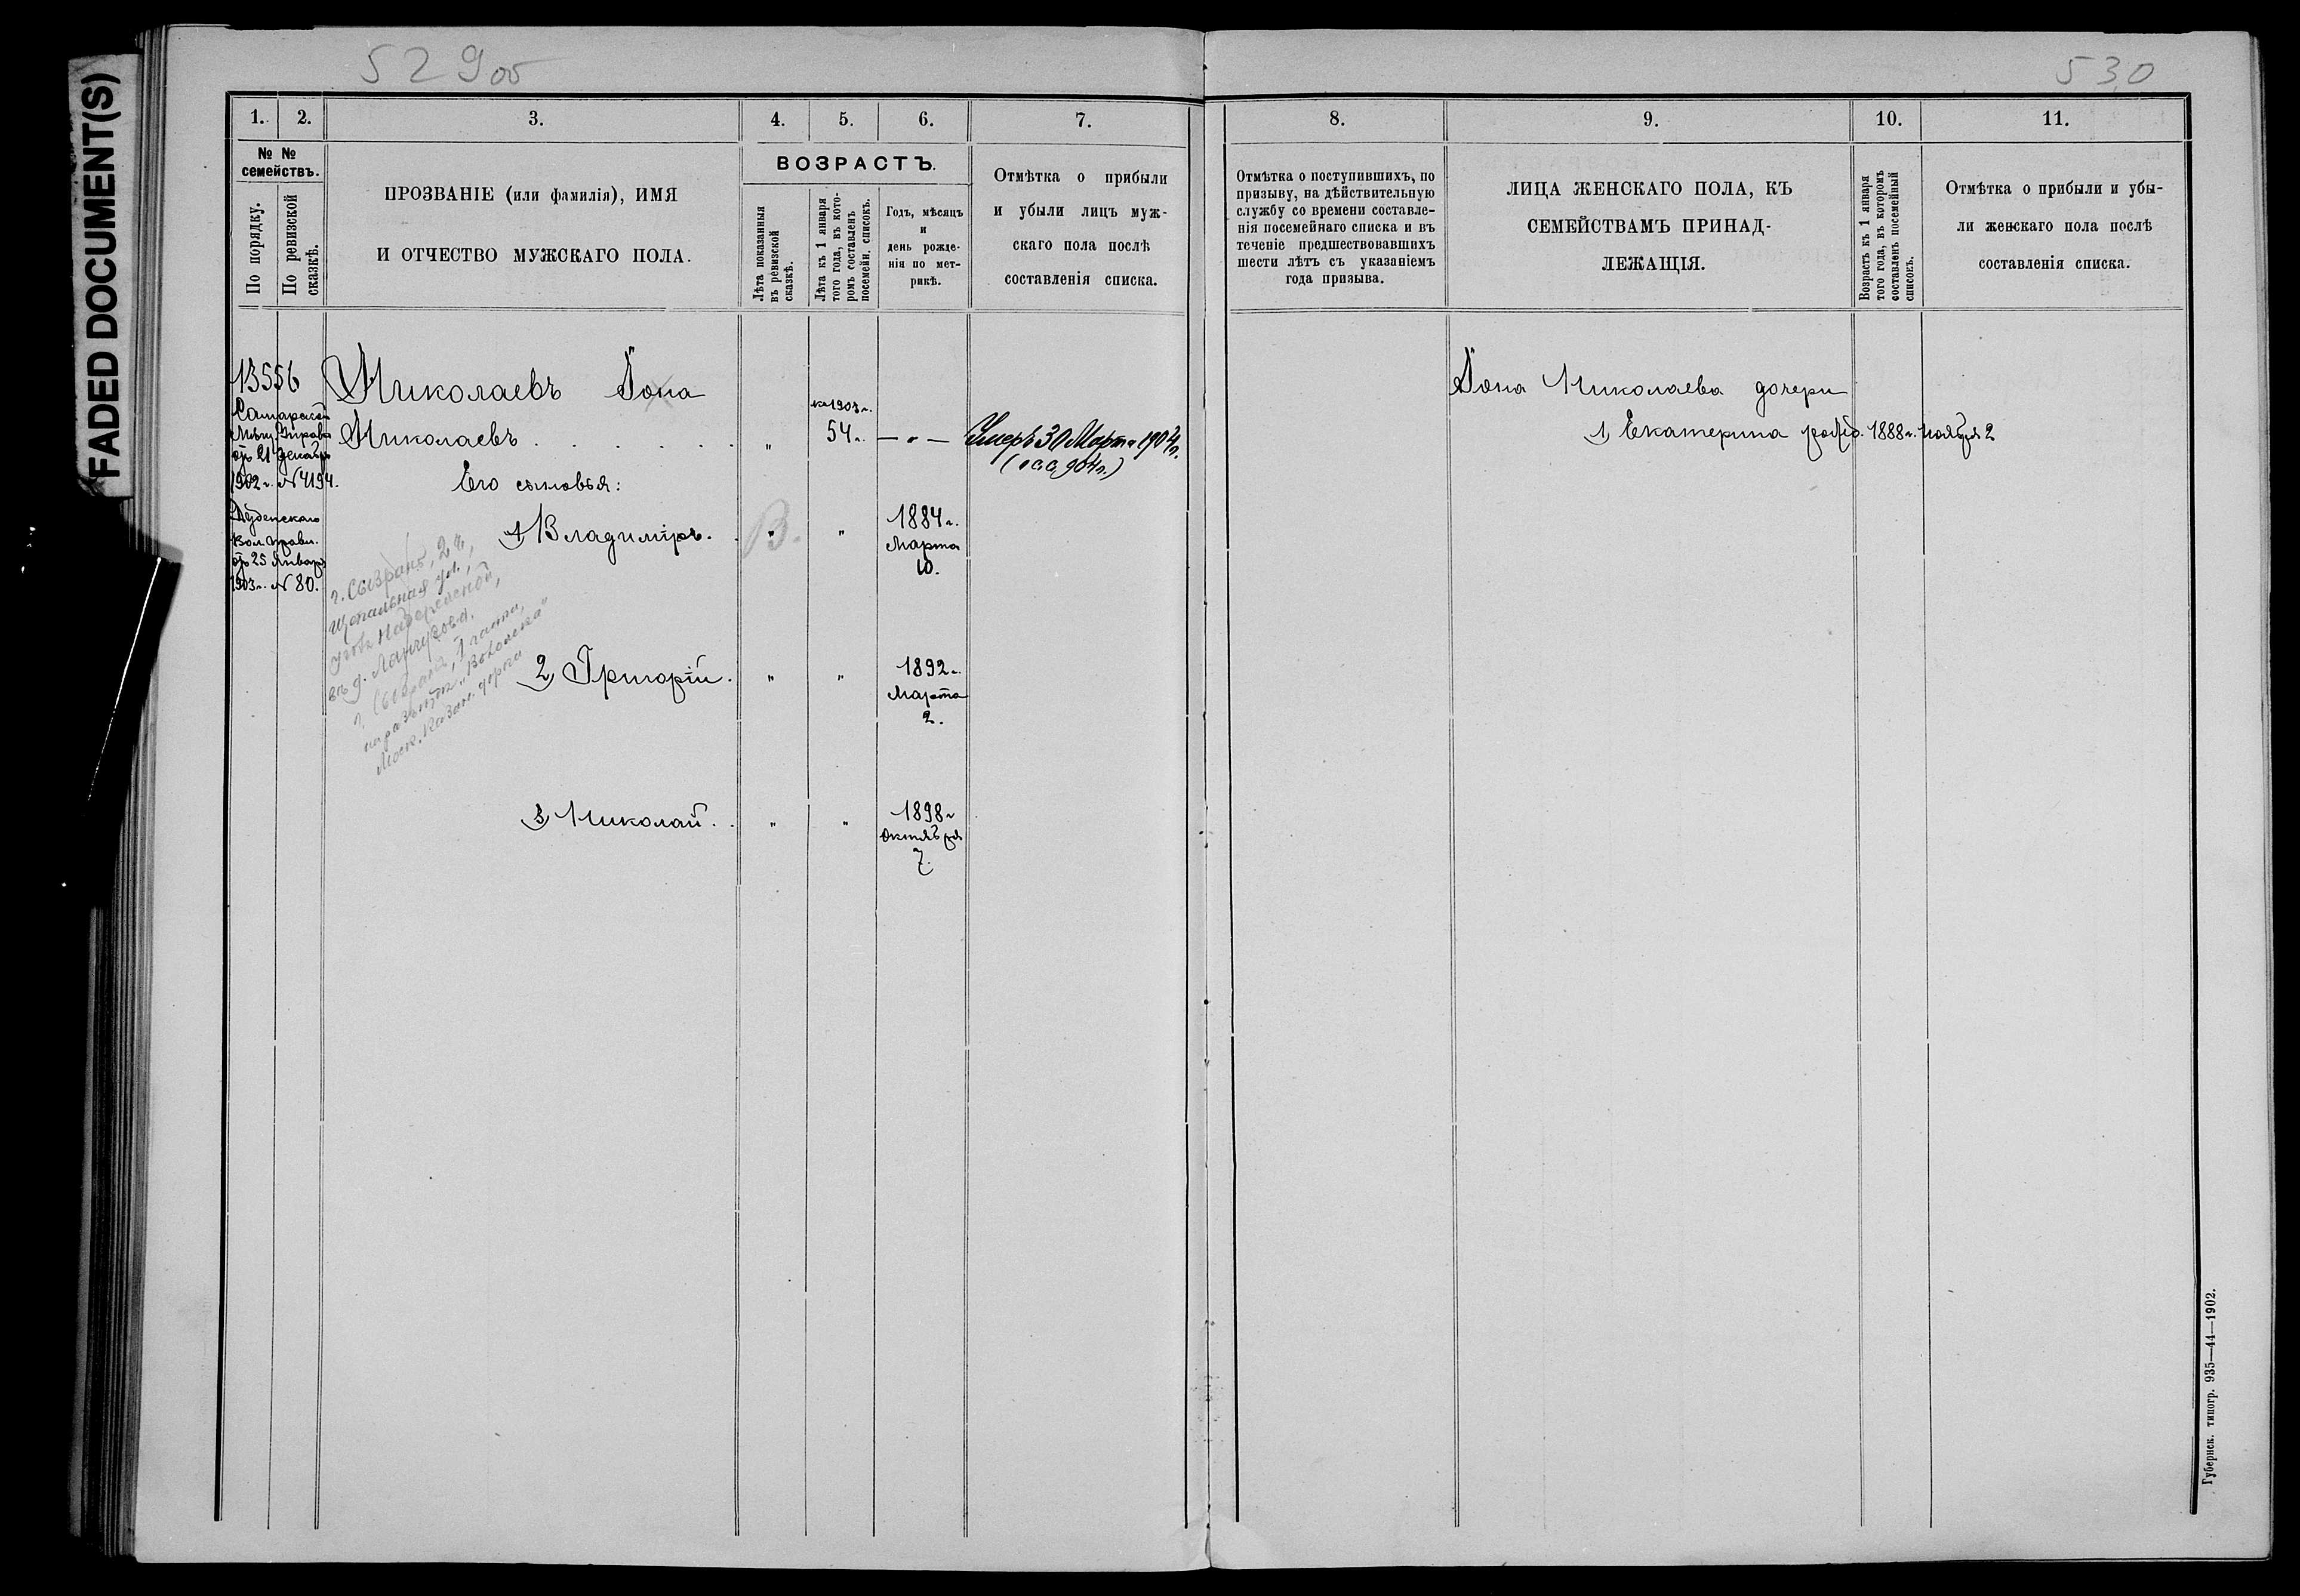 FADED DOCUMENT(S)
529 об
530
1. 2. 3. 4. 5. 6. 7.
№ № семействъ.
По порядку.
По ревизской сказкѣ.
ПРОЗВАНІЕ (или фамилія), ИМЯ
И ОТЧЕСТВО МУЖСКАГО ПОЛА.
ВОЗРАСТЪ.
Лѣта показанныя
въ ревизской
сказкѣ.
Лѣта къ 1 января
того года, въ кото-
ромъ составленъ
посемейн. списокъ.
Годъ, мѣсяцъ
и
день рожде-
нія по мет-
рикѣ.
Отмѣтка о прибыли
и убыли лицъ муж-
скаго пола послѣ
составленія списка.
13556
Николаевъ Іона
Николаевъ
къ 1903 г.
54 г.
— „ —
Умеръ 30 Марта 1904 г.
Самарской
Мѣщ. Управы
отъ 21 декабря
1902 г. № 4194.
Вол. Правл.
отъ 25 января
1903 г. № 80.
Его сыновья:
1, Владиміръ.
В.
1884 г.
Марта
10.
г. Сызрань, 2 ч,
г. Сызрань,
Моск. Казан. дорога
2, Григорій.
1892 г.
Марта
2.
3, Николай.
1898 г
октября
7.
8. 9. 10. 11.
Отмѣтка о поступившихъ, по
призыву, на дѣйствительную
службу со времени составле-
нія посемейнаго списка и въ
теченіе предшествовавшихъ
шести лѣтъ съ указаніемъ
года призыва.
ЛИЦА ЖЕНСКАГО ПОЛА, КЪ
СЕМЕЙСТВАМЪ ПРИНАД-
ЛЕЖАЩІЯ.
Возрастъ къ 1 января
того года, въ которомъ
составленъ посемейный
списокъ.
Отмѣтка о прибыли и убы-
ли женскаго пола послѣ
составленія списка.
Іона Николаева дочери
1, Екатерина родив. 1888 г. ноября 2
Губернск. типогр. 935—44—1902.